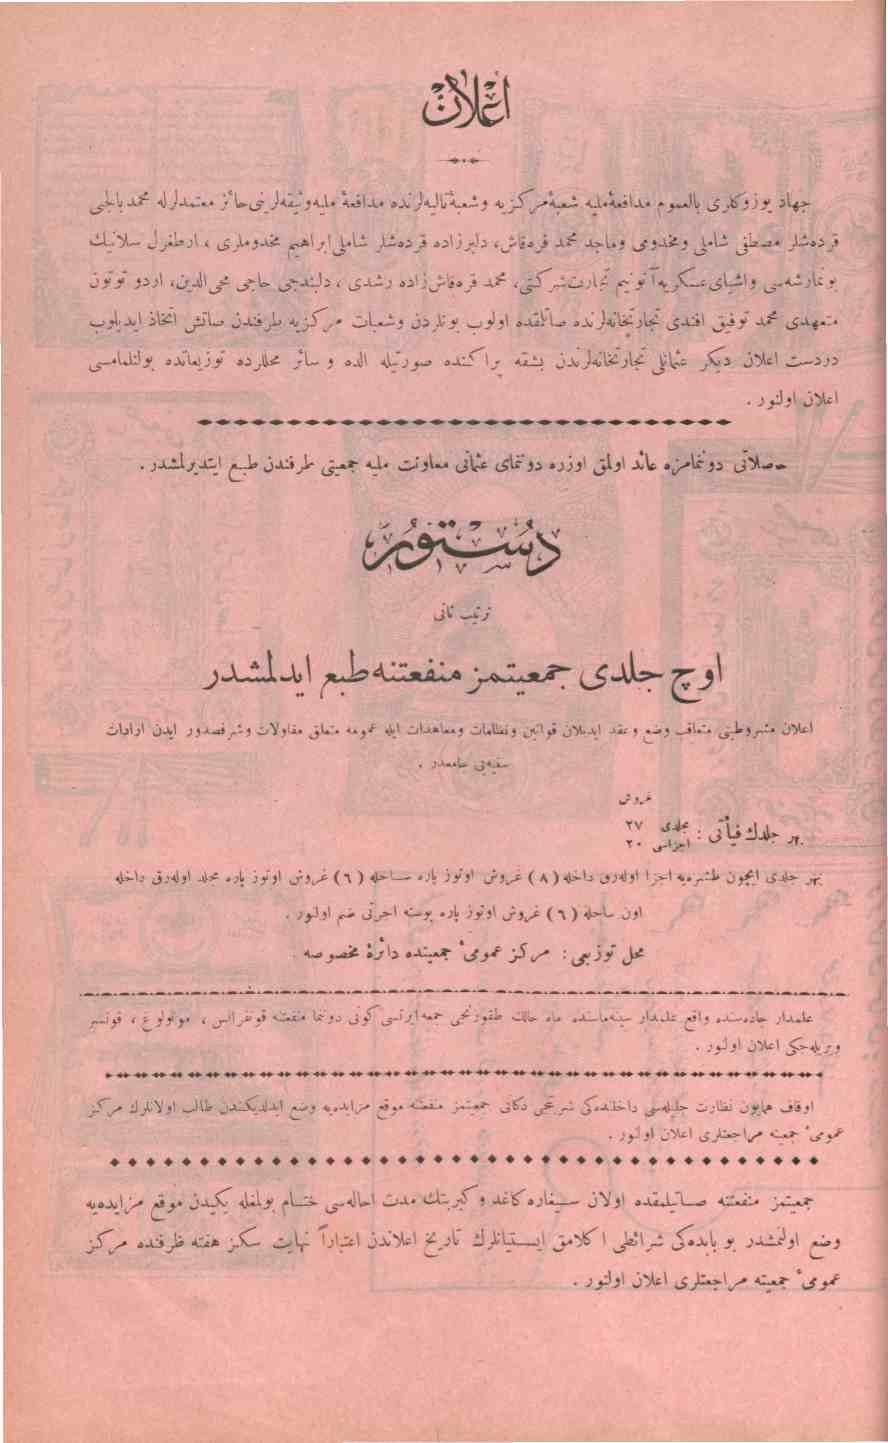 اعلان
جهاد يوزوكلرى بالعموم مدافعهٔ مليه شعبهٔ مركزيه وشعبهٔ تاليه‌لرنده مدافعهٔ مليه وثيقه‌لرينى حائز معتمدلرله محمد بالجى
قرده‌شلر مصطفى شاملى ومخدومى وماجد محمد قره‌قاش، دلبرزاده قرده‌شلر شاملى ابراهيم مخدوملرى ، ارطغرل سلانيك
بونمارشه‌سى واشياى عسكريه آنونيم تجارت شركتى، محمد قره‌قاش زاده رشدى ، دلبندجى حاجى محى الدين، اردو توتون
متعهدى محمد توفيق افندى تجارتخانه‌لرنده صاتلمقده اولوب بونلردن وشعبات مركزيه طرفندن صاتش اتخاذ ايديلوب
دردست اعلان ديكر عثمانلى تجارتخانه‌لرندن بشقه پراكنده صورتيله الده و سائر محللرده توزيعاتده بولنلمامسى
اعلان اولنور .
حصلاتى دونمامزه عائد اولمق اوزره دونماى عثمانى معاونت مليه جمعيتى طرفندن طبع ايتديرلمشدر .
دستور
ترتيب ثانى
اوچ جلدى جمعيتمز منفعتنه طبع ايدلمشدر
اعلان مشروطيتى متعاقب وضع وعقد ايديلان قوانين ونظامات ومعاهدات ايله عمومه متعلق مقاولات وشرفصدور ايدن ارادات
سنيه‌يى جامعدر .
غروش
بهر جلدك فيأتى : مجلدى ٢٧
اجزاسى ٢٠
بهر جلدى ايچون طشره‌يه اجزا اوله‌رق داخله (٨) غروش اوتوز پاره ساحله (٦) غروش اوتوز پاره مجلد اوله‌رق داخله
اون ساحله (٦) غروش اوتوز پاره پوسته اجرتى ضم اولنور .
محل توزيعى : مركز عمومىٔ جمعيتده دائرهٔ مخصوصه .
علمدار جاده‌سنده واقع علمدار سينه‌ماسنده ماه حالك طقوزنجى جمعه ايرتسى كونى دونما منفعتنه قونفرانس ، مونولوغ ، قونسر
ويريله‌جكى اعلان اولنور .
اوقاف همايون نظارت جليله‌سى داخلنده‌كى شربتجى دكانى جمعيتمز منفعتنه موقع مزايده‌يه وضع ايدلديكندن طالب اولانلرك مركز
عمومىٔ جمعيته مراجعتلرى اعلان اولنور .
جمعيتمز منفعتنه صاتيلمقده اولان سيغاره كاغد وكبريتك مدت احاله‌سى ختام بولمغله يكيدن موقع مزايده‌يه
وضع اولنمشدر بو بابده‌كى شرائطى اكلامق ايستيانلرك تاريخ اعلاندن اعتباراً نهايت سكز هفته ظرفنده مركز
عمومىٔ جمعيته مراجعتلرى اعلان اولنور .